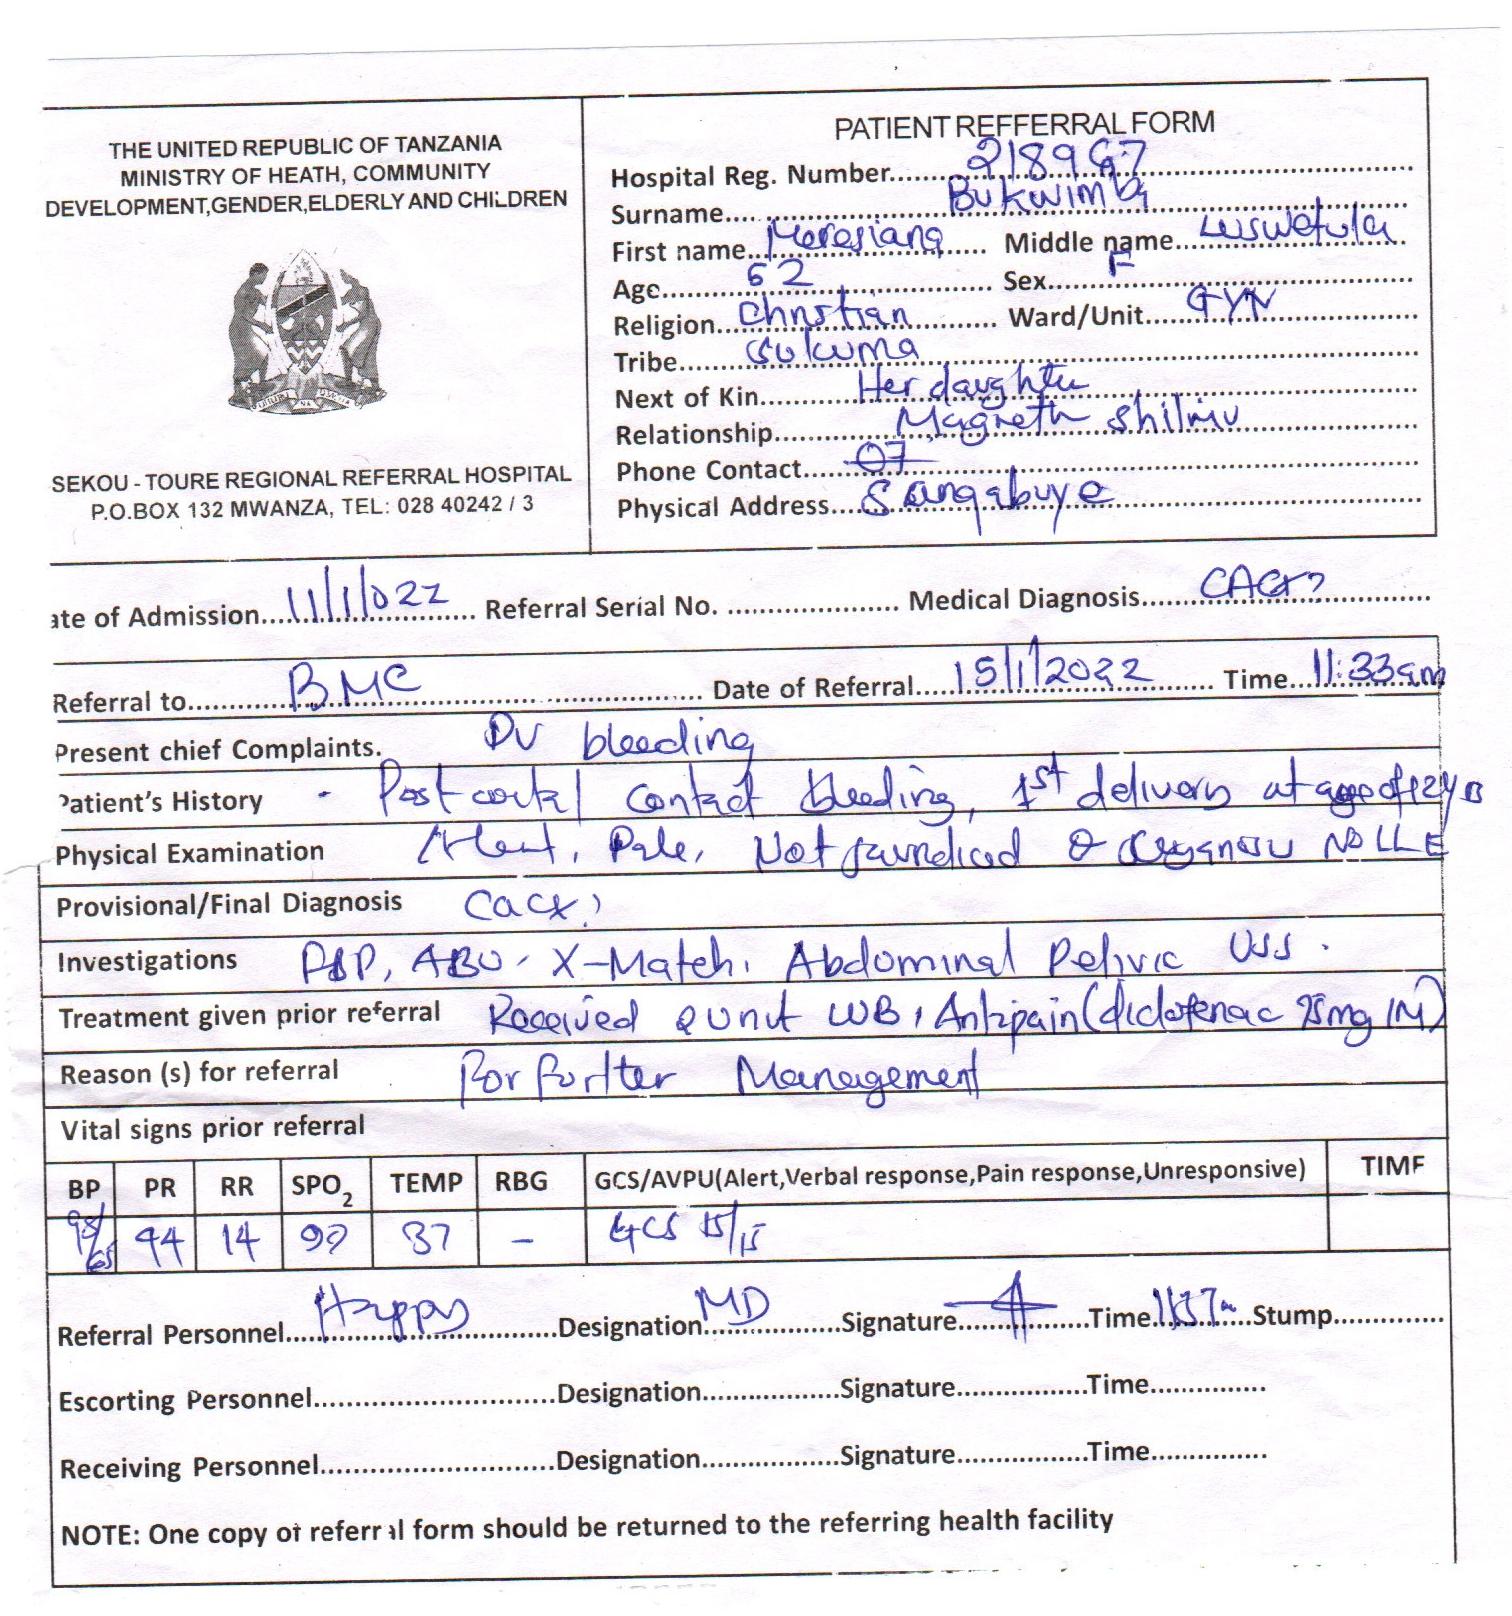 THE UNITED REPUBLIC OF TANZANIA
MINISTRY OF HEATH, COMMUNITY
DEVELOPMENT,GENDER,ELDERLY AND CHILDREN
SEKOU - TOURE REGIONAL REFERRAL HOSPITAL
P.O.BOX 132 MWANZA, TEL: 028 40242 / 3
PATIENT REFFERRAL FORM
Hospital Reg. Number
Surname.... Bukwimba
First name.. Meresiana Middle name...
Age... 62 Sex... F
Religion... Christian Ward/Unit... GYN
Tribe... Sukuma
Next of Kin... Her daughter
Relationship... Magreth
Phone Contact... 07
Physical Address... Sangabuye
ate of Admission... 11/1/022 Referral Serial No. ... Medical Diagnosis... CACX?
Referral to... BMC Date of Referral... 15/1/2022 Time... 11:33am
Present chief Complaints. PV bleeding
Patient's History - Post coital contact bleeding, 1st delivery at age of
Physical Examination Alert, Pale, Not jaundiced LLE
Provisional/Final Diagnosis CaCx?
Investigations ABO, X-Match, Abdominal Pelivic USS.
Treatment given prior referral Received 2 unit WB, Antipain (diclofenac 75mg IM)
Reason (s) for referral For furlter Management
Vital signs prior referral
BP PR RR SPO2 TEMP RBG GCS/AVPU(Alert,Verbal response,Pain response,Unresponsive) TIMF
98/65 94 14 37 - GCS 15/15
Referral Personnel... Happy Designation... MD Signature... Time... Stump...
Escorting Personnel... Designation... Signature... Time...
Receiving Personnel... Designation... Signature... Time...
NOTE: One copy of referral form should be returned to the referring health facility